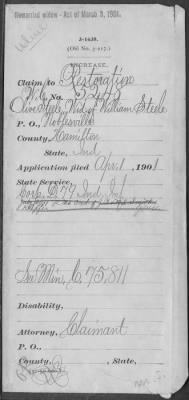 Remarried widow - Act of March 3, 1901.
3-1639.
(Old No. 3-217.)
INCREASE.
Claim to Restoration
Wid. No.
Olive Steele, Wid. of William Steele
P. O., Noblesville
County, Hamilton
State, Ind
Application filed Apr. 1, 1901
State Service,
Corp. D. 77 Ind. Inf.
See Min. C. 75,811
Disability,
Attorney, Claimant
P. O.,
County, State,